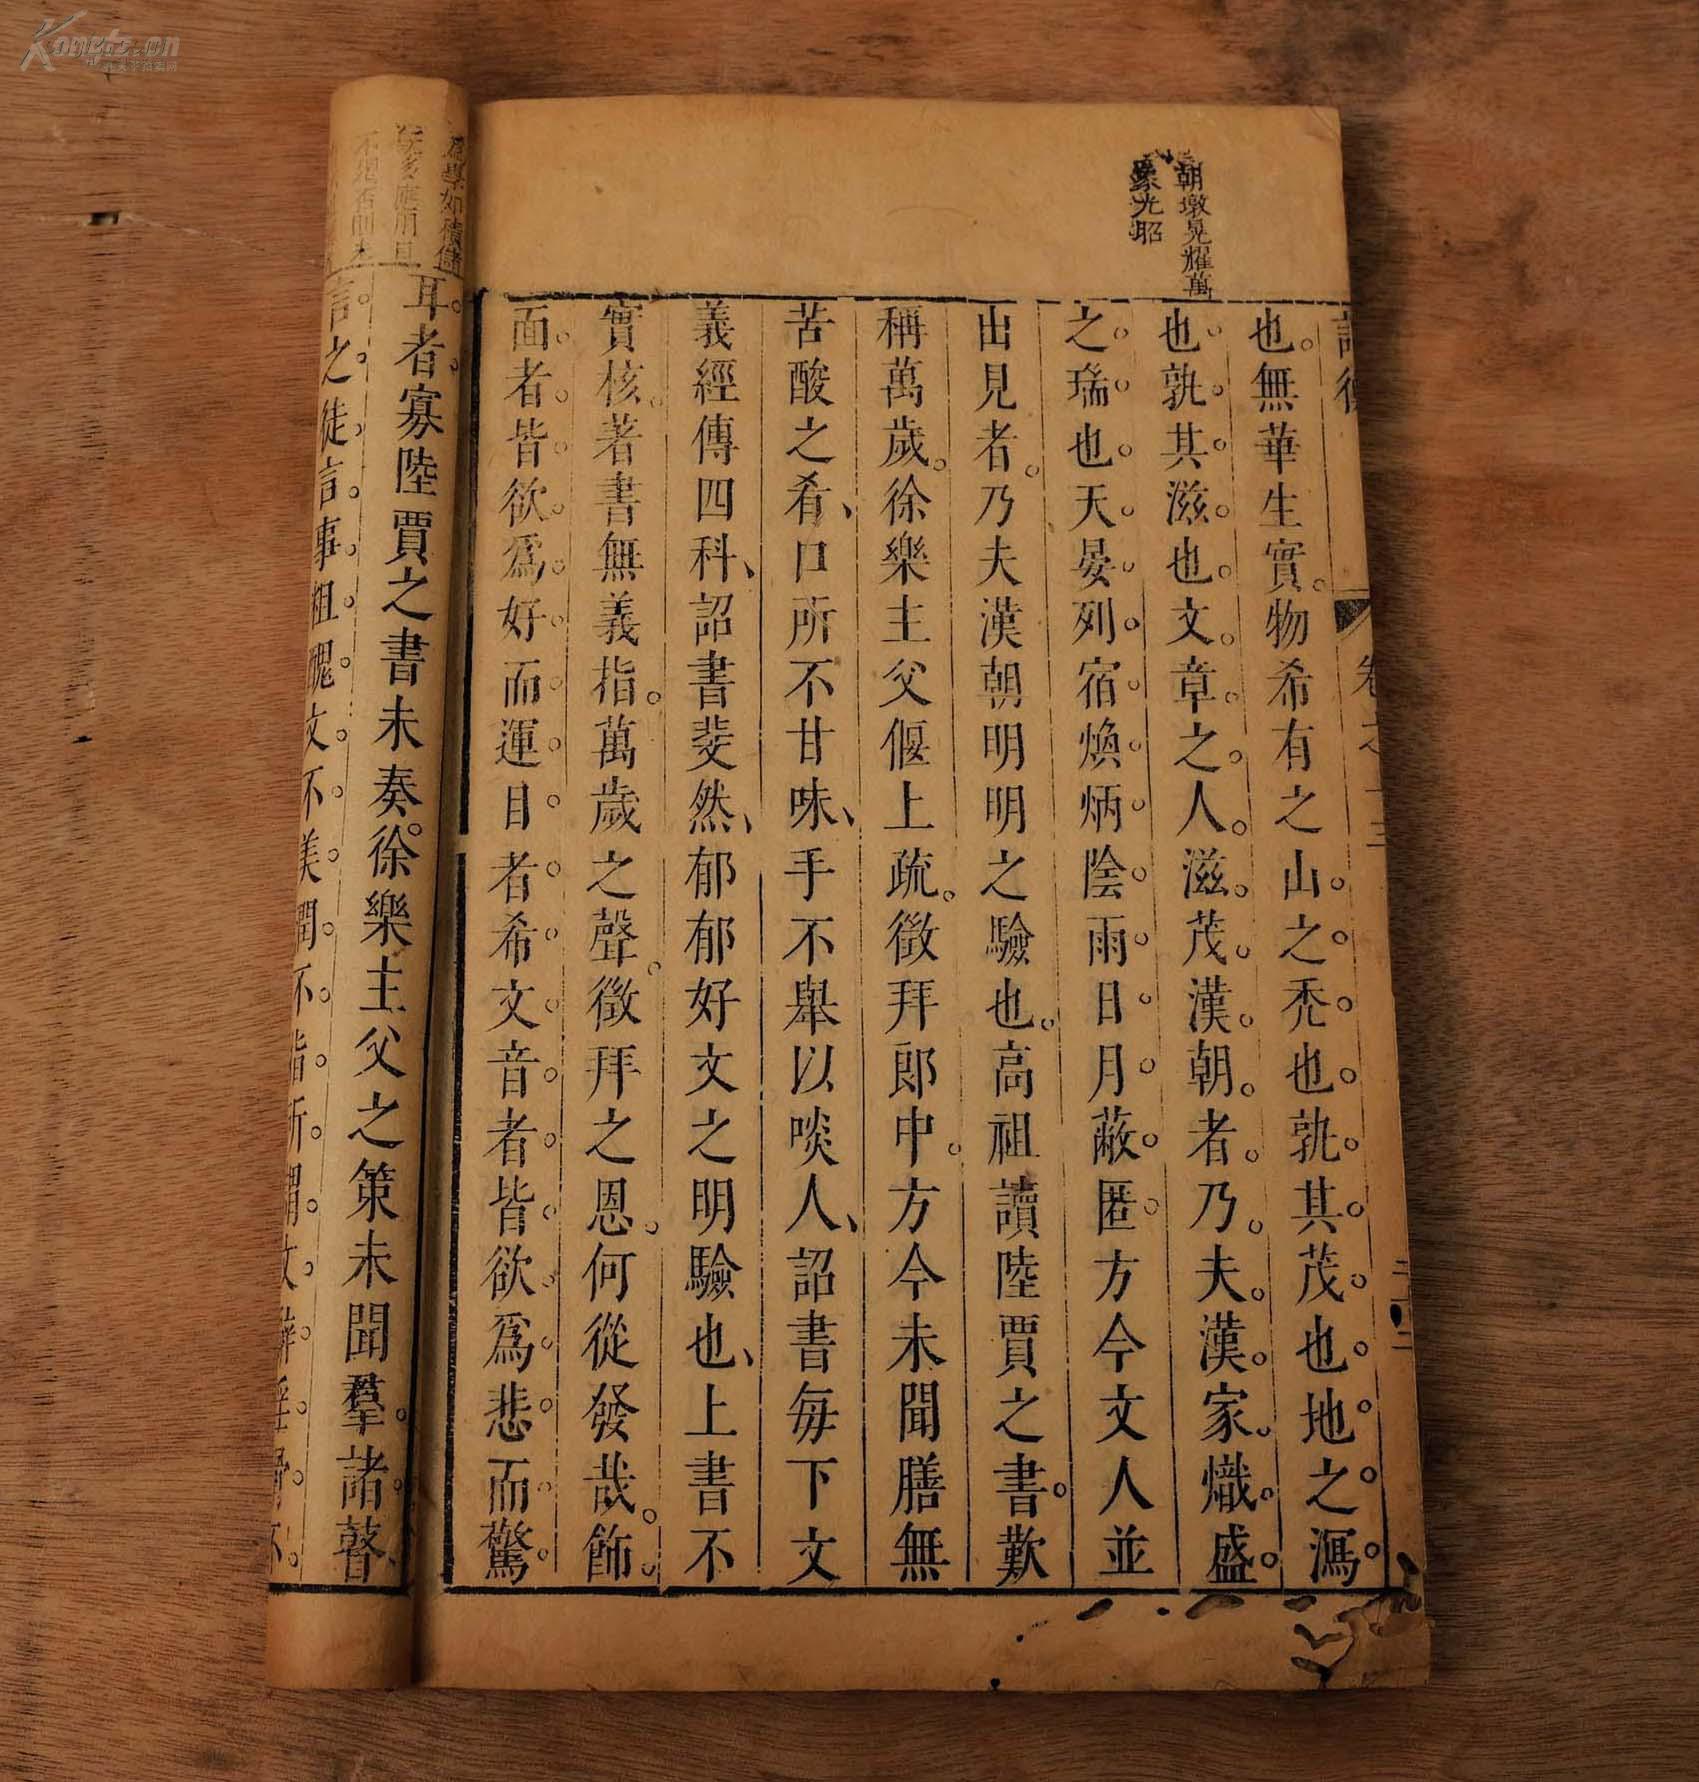 朝墩晃耀萬
象光昭
也。無華生實。物希有之山。之。禿。也。孰。其。茂。也。地。之。瀉。
也。孰。其。滋。也。文。章。之。人。滋。茂。漢。朝。者。乃。夫。漢。家。熾。盛。
之。瑞。也。天。晏。列。宿。煥。炳。陰。雨。日。月。蔽。匿。方今文人並
出見者。乃夫漢朝明明之驗也。高祖讀陸賈之書。歎
稱萬歲。徐樂主父偃上疏。徵拜郎中。方今未聞膳無
苦酸之肴、口所不甘味、手不舉以啖人、詔書每下文
義經傳四科、詔書斐然、郁郁好文之明驗也、上書不
實核。著書無義指。萬歲之聲。徵拜之恩。何從發哉。飾。
面。者。皆。欲。爲。好。而。運。目。者。希。文。音。者。皆。欲。爲。悲。而。驚。
爲學如積儲
耳。者。寡陸賈之書未奏。徐樂主父之策未聞羣。諸。瞽、
言。之。徒。言。事。粗。醜。文。不。美。潤。不。指。所。謂。文。辭。淫。滑。不。
Kongfz.cn